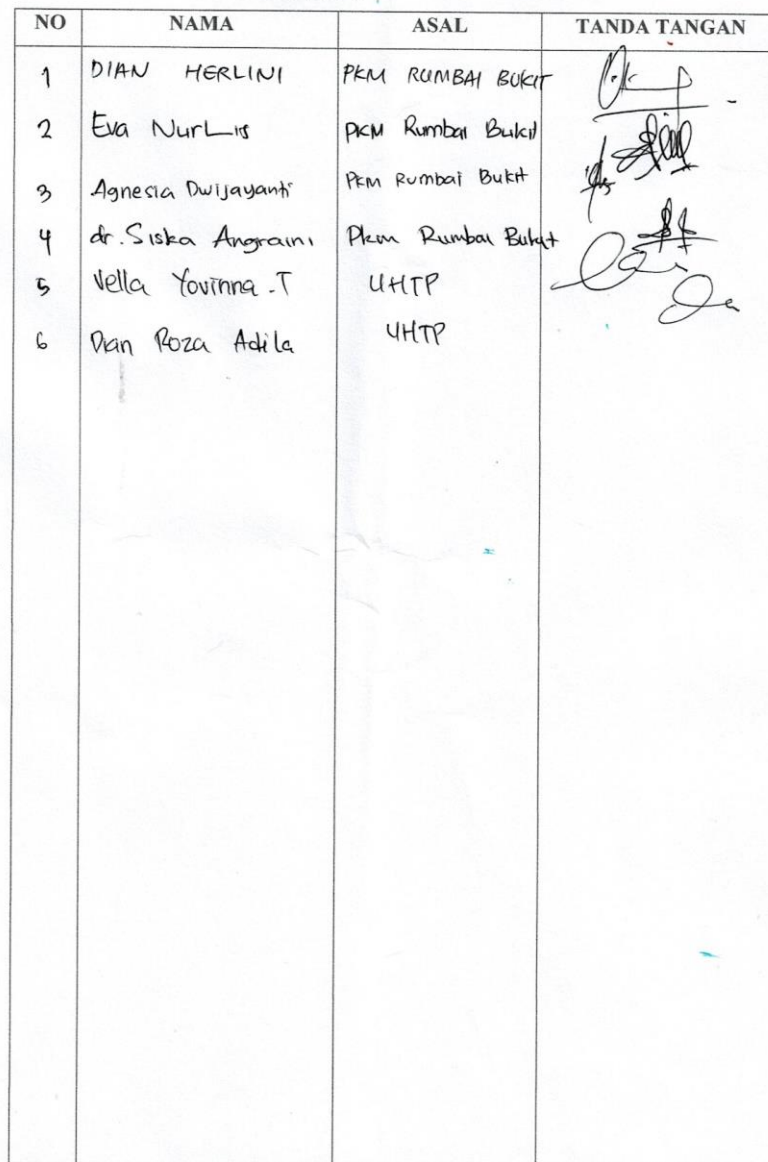 NO NAMA ASAL TANDA TANGAN
1 DIAN HERLINI PKM RUMBAI BUKIT
2 Eva NurLis PKM Rumbai Bukit
3 Agnesia Dwijayanti PKM Rumbai Bukit
4 dr. Siska Angraini Pkm Rumbai Bukit
5 Vella Yovinna .T UHTP
6 Dian Roza Adila UHTP